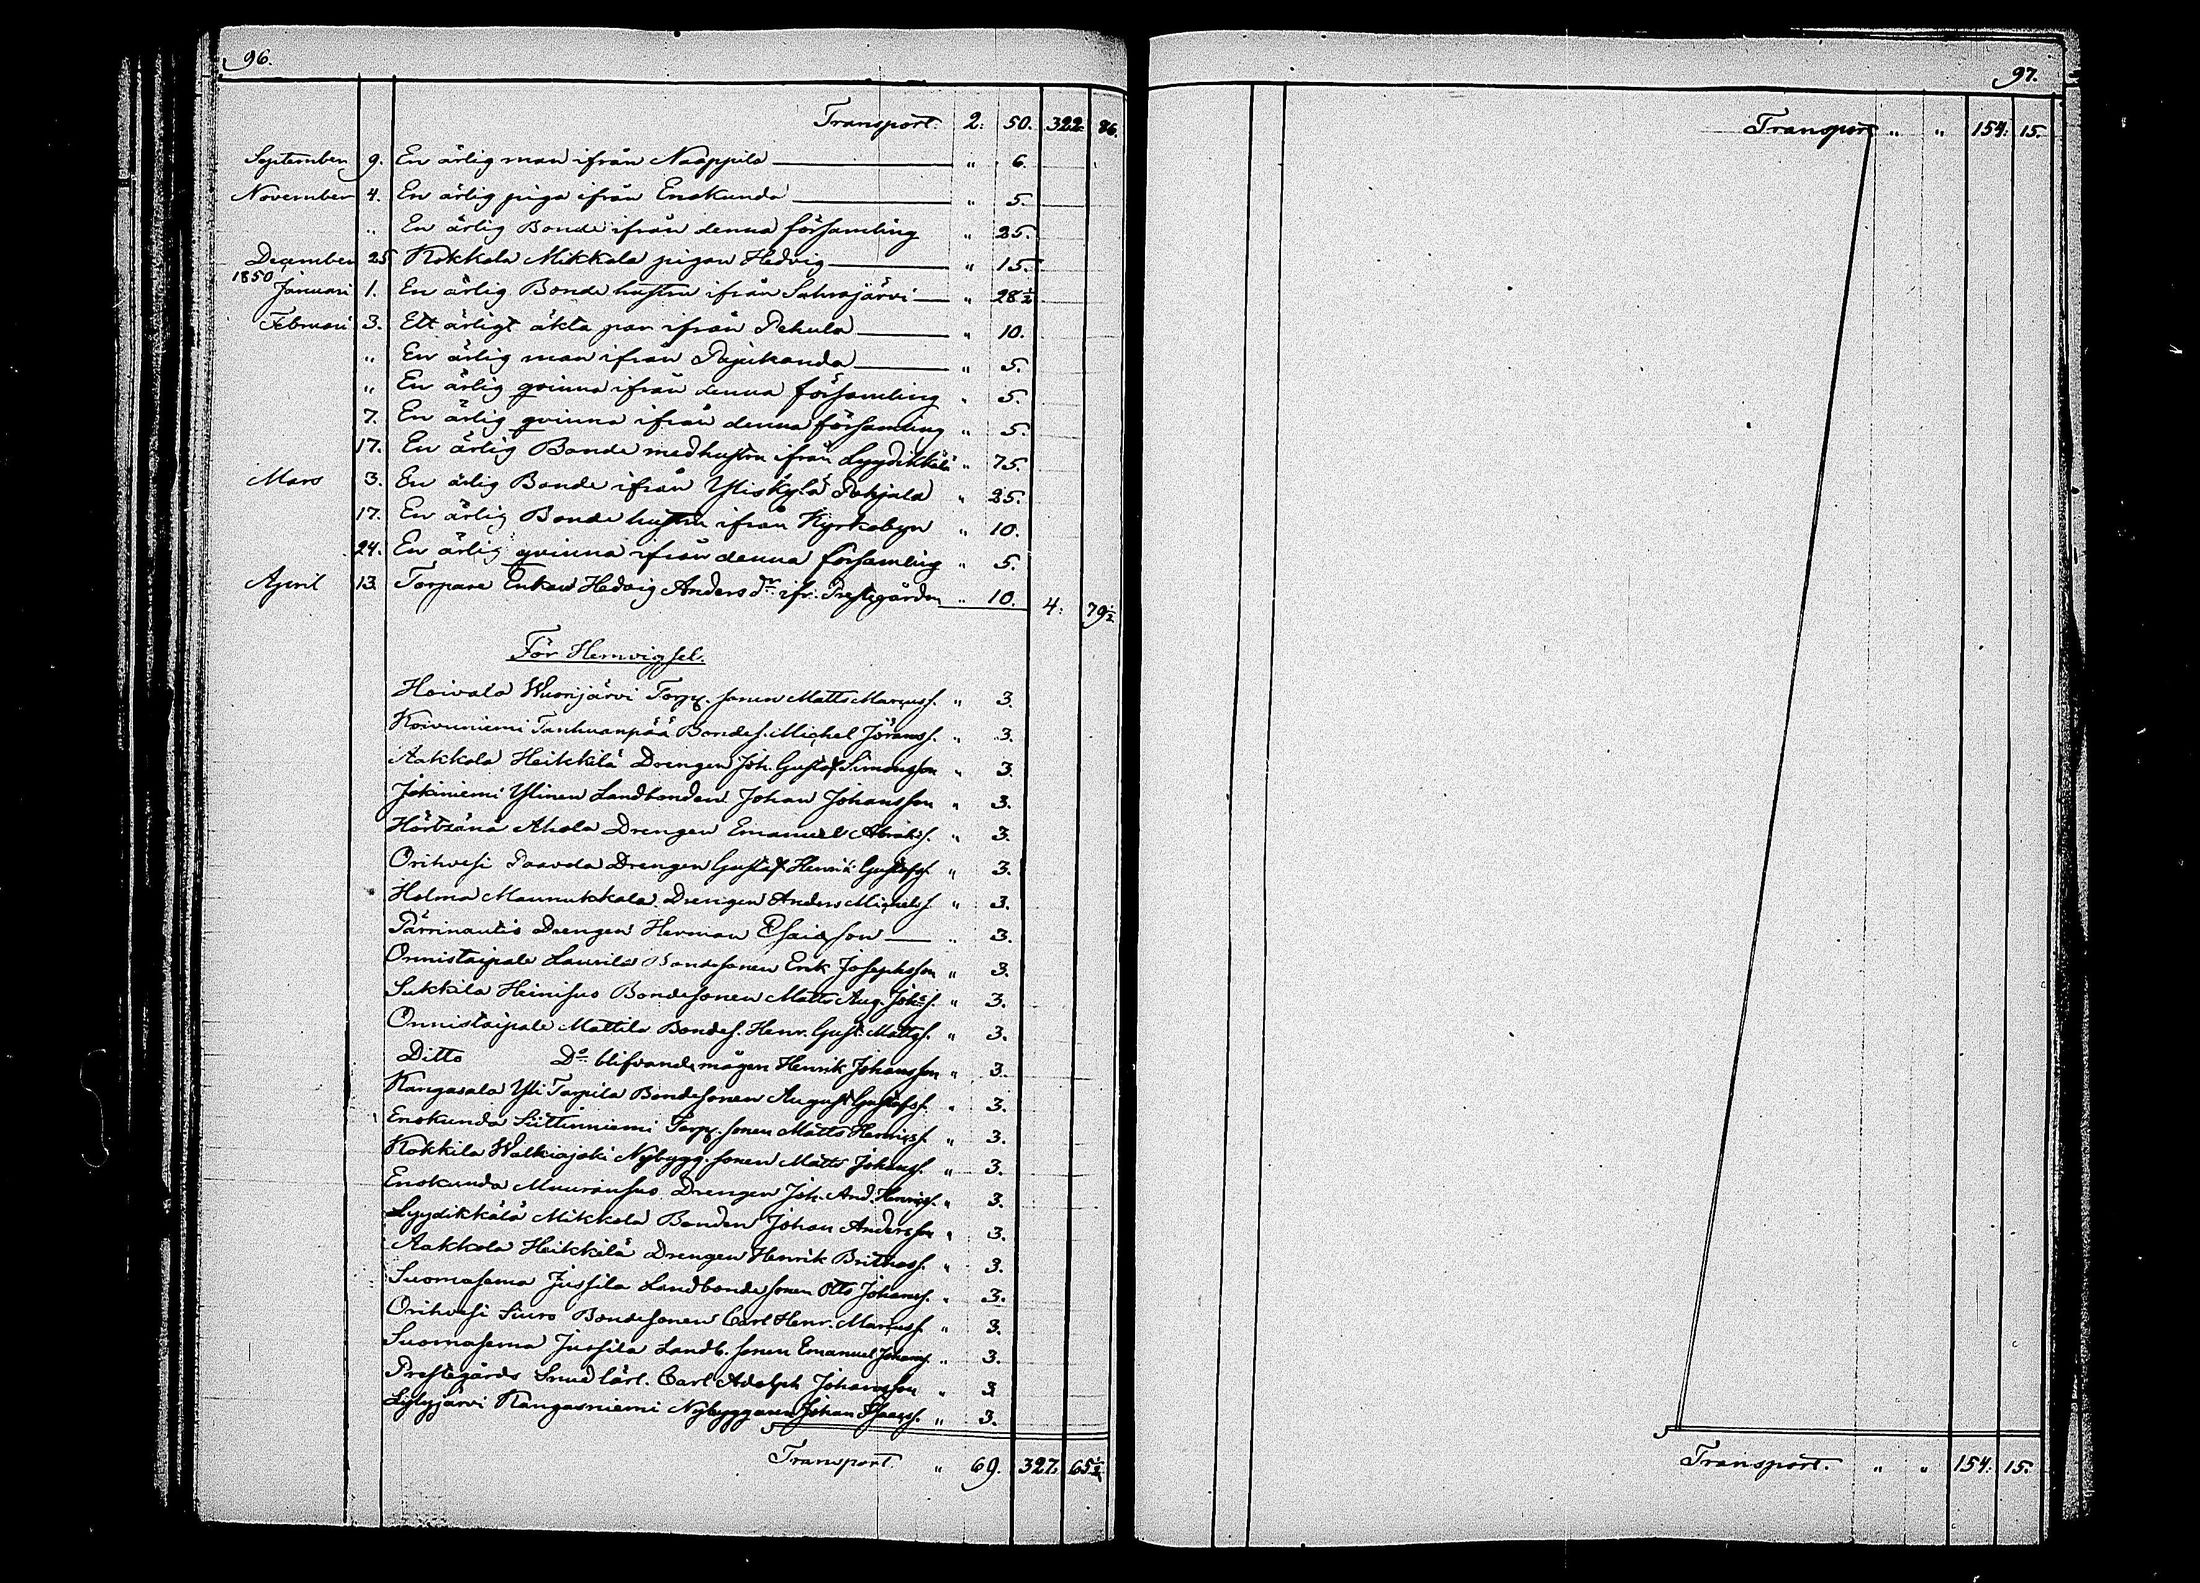 96.
Transport. 2: 50. 322: 86.
September 9. En ärlig man ifrån Naappila " 6.
November 4. En ärlig piga ifrån Enokunda " 5.
" En ärlig Bonde ifrån denna församling " 25.
December 25 Kokkola Mikkola pigan Hedvig " 15.
1850
Januari 1. En ärlig Bonde hustru ifrån Sahrajärvi " 28 1/2
Februari 3. Ett ärligt äkta par ifrån Pehula " 10.
" En ärlig man ifrån Pajukanda " 5.
" En ärlig qvinna ifrån denna församling " 5.
7. En ärlig qvinna ifrån denna församling " 5.
17. En ärlig Bonde med hustru ifrån Lyydikkälä " 75.
Mars 3. En ärlig Bonde ifrån Yliskylä Pohjala " 25.
17. En ärlig Bonde hustru ifrån Kyrkobyn " 10.
24. En ärlig qvinna ifrån denna församling " 5.
April 13. Torpare Enkan Hedvig Anders Dr ifr. Prestegården " 10. 4: 79 1/2
För Hemvigsel.
Hoivala Wuorijärvi Torp. sonen Matts Marcuss. " 3.
Koivuniemi Tanhuanpää Bondes. Michel Jöranss. " 3.
Aakkola Heikkilä Drengen Joh. Gustaf Simonsson " 3.
Jokiniemi Ylinen Landbonden Johan Johansson " 3.
Ahola Drengen Emanuel Abrahs. " 3.
Orihvesi Paavola Drengen Gustaf Henrik Gustafss. " 3.
Holma Maunukkala Drengen Anders Michelss. " 3.
Drengen Herman Esaiasson " 3.
Onnistaipale Laurila Bondesonen Erik Josephsson " 3.
Sukkila Heinisuo Bondesonen Matts Aug. Johs. " 3.
Onnistaipale Mattila Bondes. Henr. Gust. Mattss. " 3.
Ditto Do blifvande mågen Henrik Johansson " 3.
Kangasala Yli Tarpila Bondesonen August Gustafss. " 3.
Enokunda Siittinniemi Torp. sonen Matts Henricss. " 3.
Kokkila Walkiajoki Nybygg. sonen Matts Johanss. " 3.
Enokunda Muuransuo Drengen Joh. And. Henricss. " 3.
Lyydikkälä Mikkola Bonden Johan Andersson " 3.
Aakkola Heikkilä Drengen Henrik Brithass. " 3.
Suomasema Jussila Landbondesonen Otto Johanss. " 3.
Orihvesi Siuro Bondesonen Carl Henr. Marcuss. " 3.
Suomasema Jussila Landb. sonen Emanuel Johanss. " 3.
Prestegårds Smed lärl. Carl Adolph Johansson " 3
Lylyjärvi Kangasniemi Nybyggaren Johan Esaiass. " 3.
Transport. " 69. 327: 65 1/2
97.
Transport " " 154: 15.
Transport. " " 154: 15.